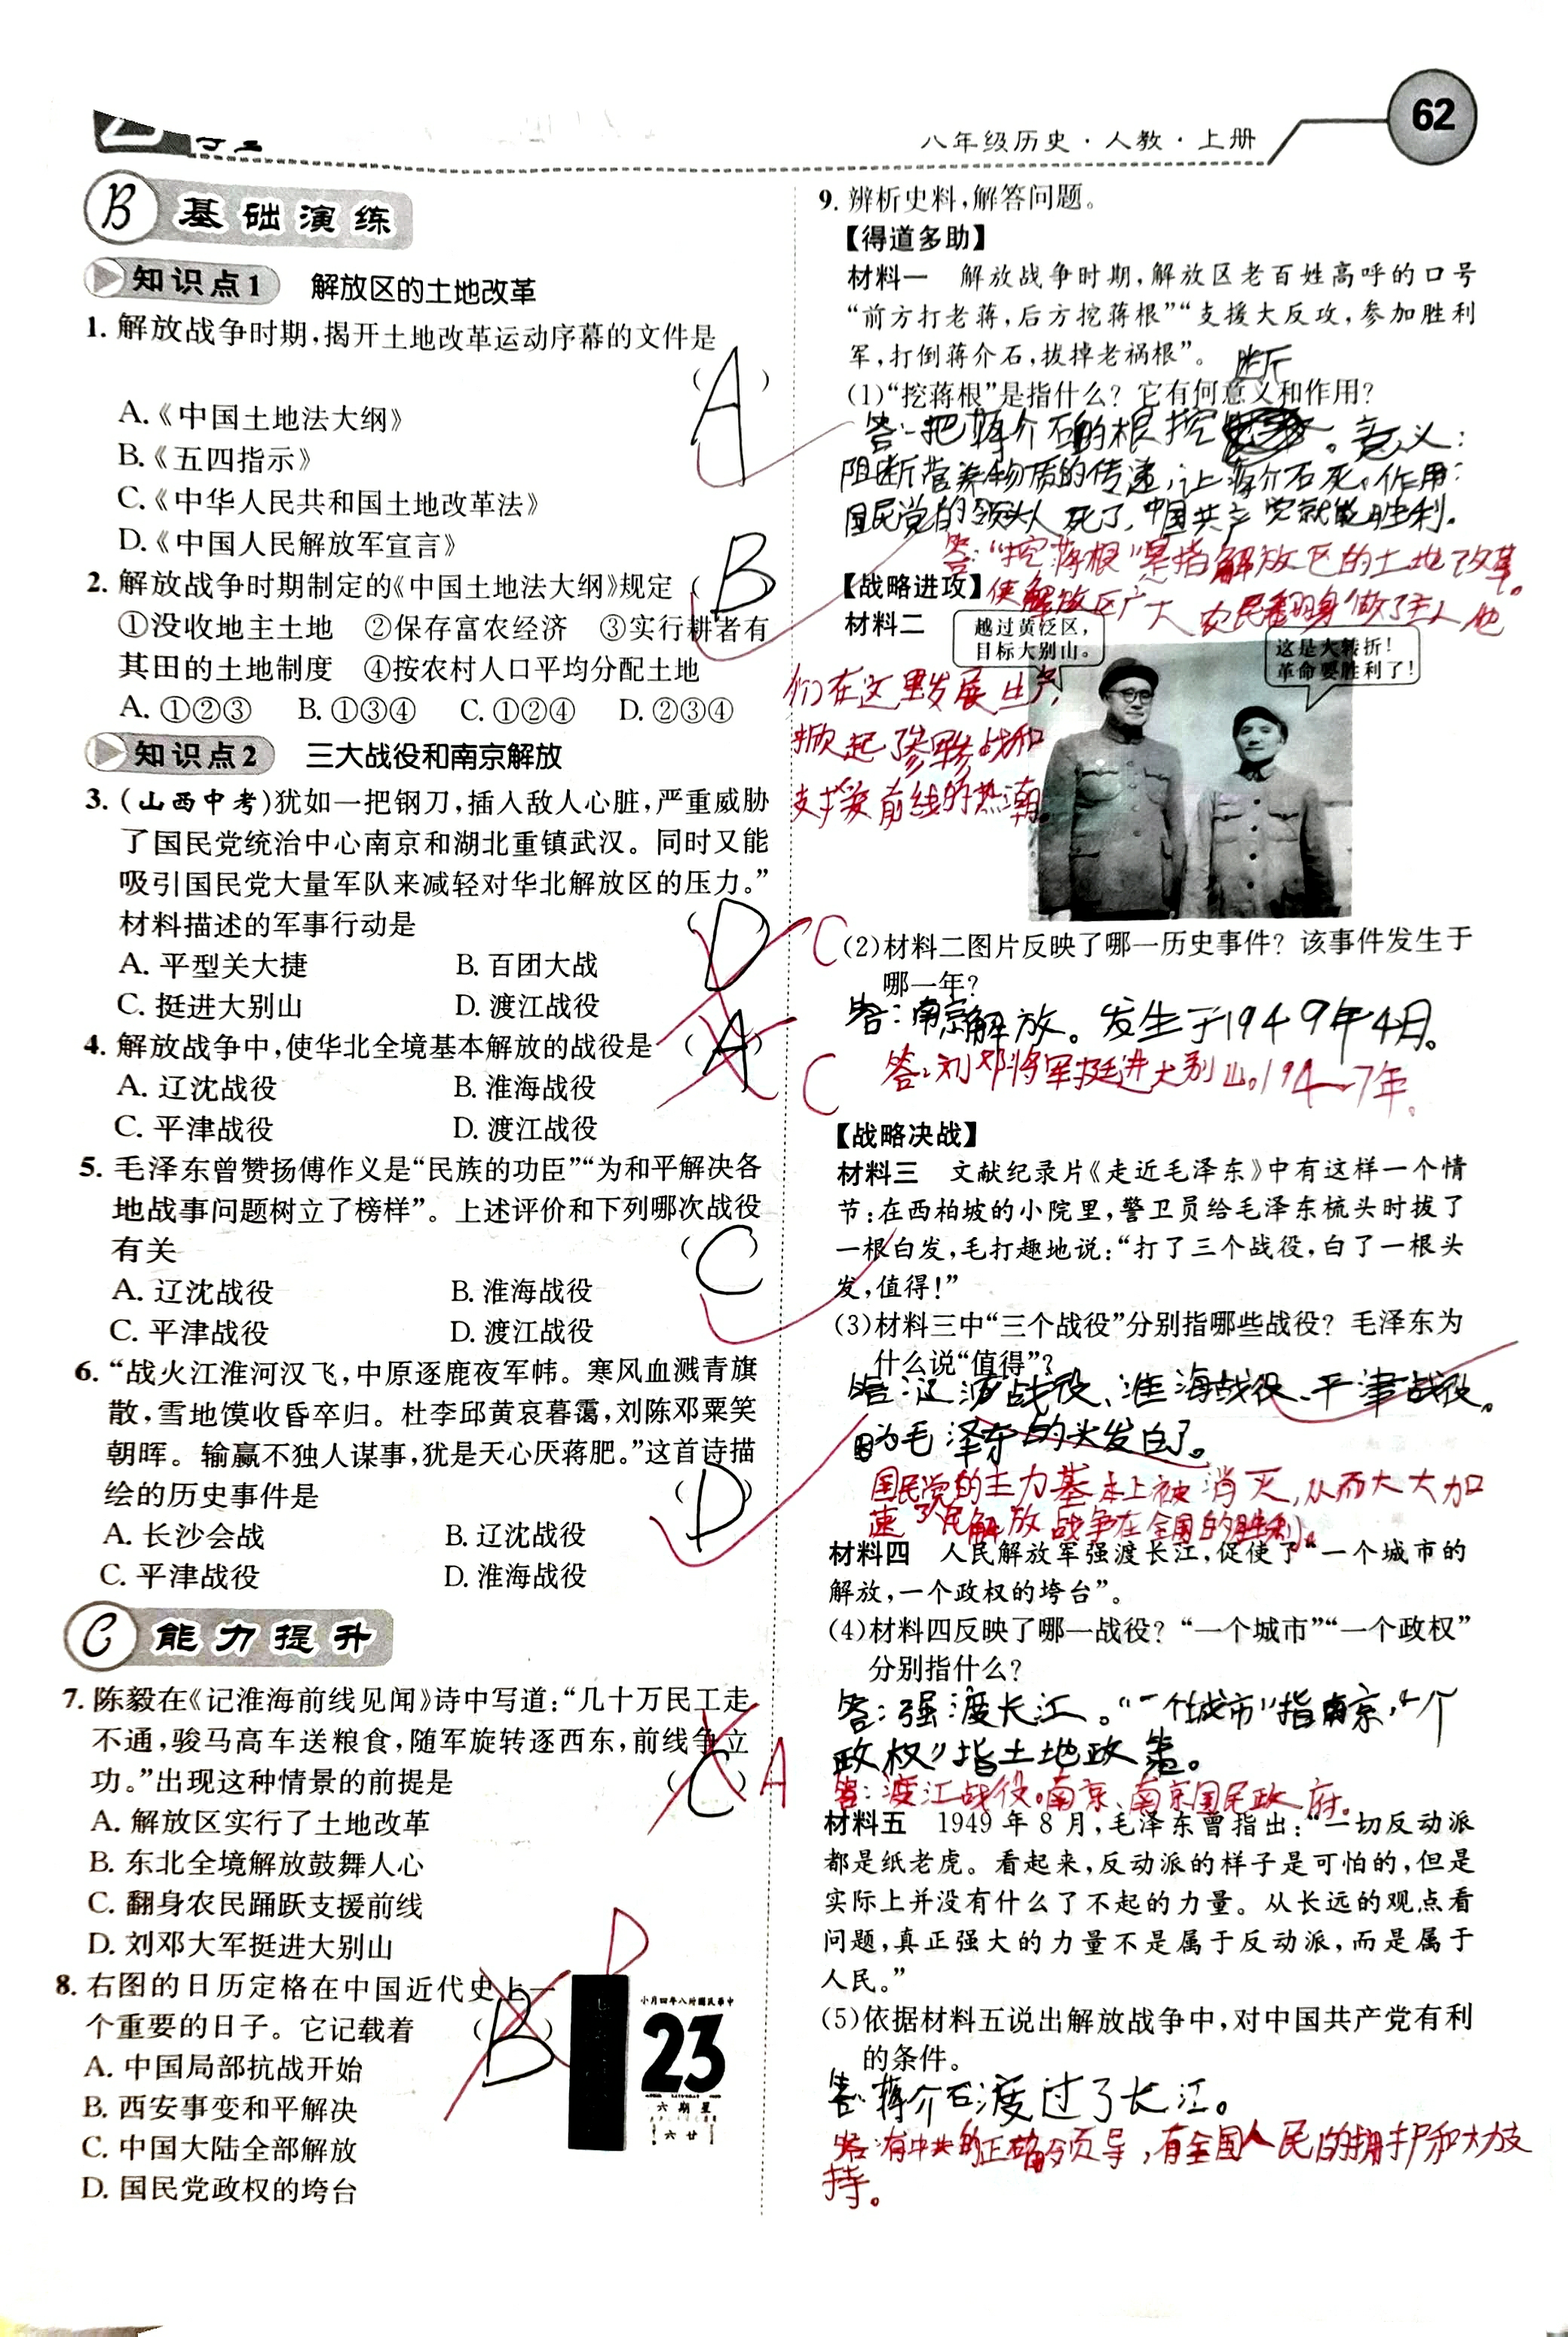 八年级历史·人教·上册
62
B 基础演练
知识点1 解放区的土地改革
1. 解放战争时期,揭开土地改革运动序幕的文件是
( A )
A.《中国土地法大纲》
B.《五四指示》
C.《中华人民共和国土地改革法》
D.《中国人民解放军宣言》
2. 解放战争时期制定的《中国土地法大纲》规定 ( B )
①没收地主土地 ②保存富农经济 ③实行耕者有
其田的土地制度 ④按农村人口平均分配土地
A. ①②③ B. ①③④ C. ①②④ D. ②③④
知识点2 三大战役和南京解放
3. (山西中考)犹如一把钢刀,插入敌人心脏,严重威胁
了国民党统治中心南京和湖北重镇武汉。同时又能
吸引国民党大量军队来减轻对华北解放区的压力。”
材料描述的军事行动是 ( D ) C
A. 平型关大捷 B. 百团大战
C. 挺进大别山 D. 渡江战役
4. 解放战争中,使华北全境基本解放的战役是 ( A ) C
A. 辽沈战役 B. 淮海战役
C. 平津战役 D. 渡江战役
5. 毛泽东曾赞扬傅作义是“民族的功臣”“为和平解决各
地战事问题树立了榜样”。上述评价和下列哪次战役
有关 ( C )
A. 辽沈战役 B. 淮海战役
C. 平津战役 D. 渡江战役
6. “战火江淮河汉飞,中原逐鹿夜军帏。寒风血溅青旗
散,雪地馍收昏卒归。杜李邱黄哀暮霭,刘陈邓粟笑
朝晖。输赢不独人谋事,犹是天心厌蒋肥。”这首诗描
绘的历史事件是 ( D )
A. 长沙会战 B. 辽沈战役
C. 平津战役 D. 淮海战役
C 能力提升
7. 陈毅在《记淮海前线见闻》诗中写道:“几十万民工走
不通,骏马高车送粮食,随军旋转逐西东,前线争立
功。”出现这种情景的前提是 ( C ) A
A. 解放区实行了土地改革
B. 东北全境解放鼓舞人心
C. 翻身农民踊跃支援前线
D. 刘邓大军挺进大别山
8. 右图的日历定格在中国近代史上一
个重要的日子。它记载着 ( B ) D
A. 中国局部抗战开始
B. 西安事变和平解决
C. 中国大陆全部解放
D. 国民党政权的垮台
小月四年八卅國民華中
23
六期星
六廿
9. 辨析史料,解答问题。
【得道多助】
材料一 解放战争时期,解放区老百姓高呼的口号
“前方打老蒋,后方挖蒋根”“支援大反攻,参加胜利
军,打倒蒋介石,拔掉老祸根”。
断
(1)“挖蒋根”是指什么? 它有何意义和作用?
答:把蒋介石的根挖 。意义:
阻断营养物质的传递,让蒋介石死。作用:
国民党的领头人死了,中国共产党就能胜利。
答:“挖蒋根”是指解放区的土地改革。
【战略进攻】 使解放区广大农民翻身做了主人,他
材料二 越过黄泛区,
目标大别山。
这是大转折!
革命要胜利了!
们在这里发展生产,
掀起了参军参战和
支援前线的热潮。
(2)材料二图片反映了哪一历史事件? 该事件发生于
哪一年?
答:南京解放。发生于1949年4月。
答:刘邓将军挺进大别山。1947年。
【战略决战】
材料三 文献纪录片《走近毛泽东》中有这样一个情
节:在西柏坡的小院里,警卫员给毛泽东梳头时拔了
一根白发,毛打趣地说:“打了三个战役,白了一根头
发,值得!”
(3)材料三中“三个战役”分别指哪些战役? 毛泽东为
什么说“值得”?
答:辽沈战役、淮海战役、平津战役。
因为毛泽东的头发白了。
国民党的主力基本上被消灭,从而大大加
速了人民解放战争在全国的胜利。
材料四 人民解放军强渡长江,促使了“一个城市的
解放,一个政权的垮台”。
(4)材料四反映了哪一战役? “一个城市”“一个政权”
分别指什么?
答:强渡长江。“一个城市”指南京,“一个
政权”指土地政策。
答:渡江战役。南京、南京国民政府。
材料五 1949年8月,毛泽东曾指出:“一切反动派
都是纸老虎。看起来,反动派的样子是可怕的,但是
实际上并没有什么了不起的力量。从长远的观点看
问题,真正强大的力量不是属于反动派,而是属于
人民。”
(5)依据材料五说出解放战争中,对中国共产党有利
的条件。
答:蒋介石渡过了长江。
答:有中共的正确领导,有全国人民的拥护和大力支
持。